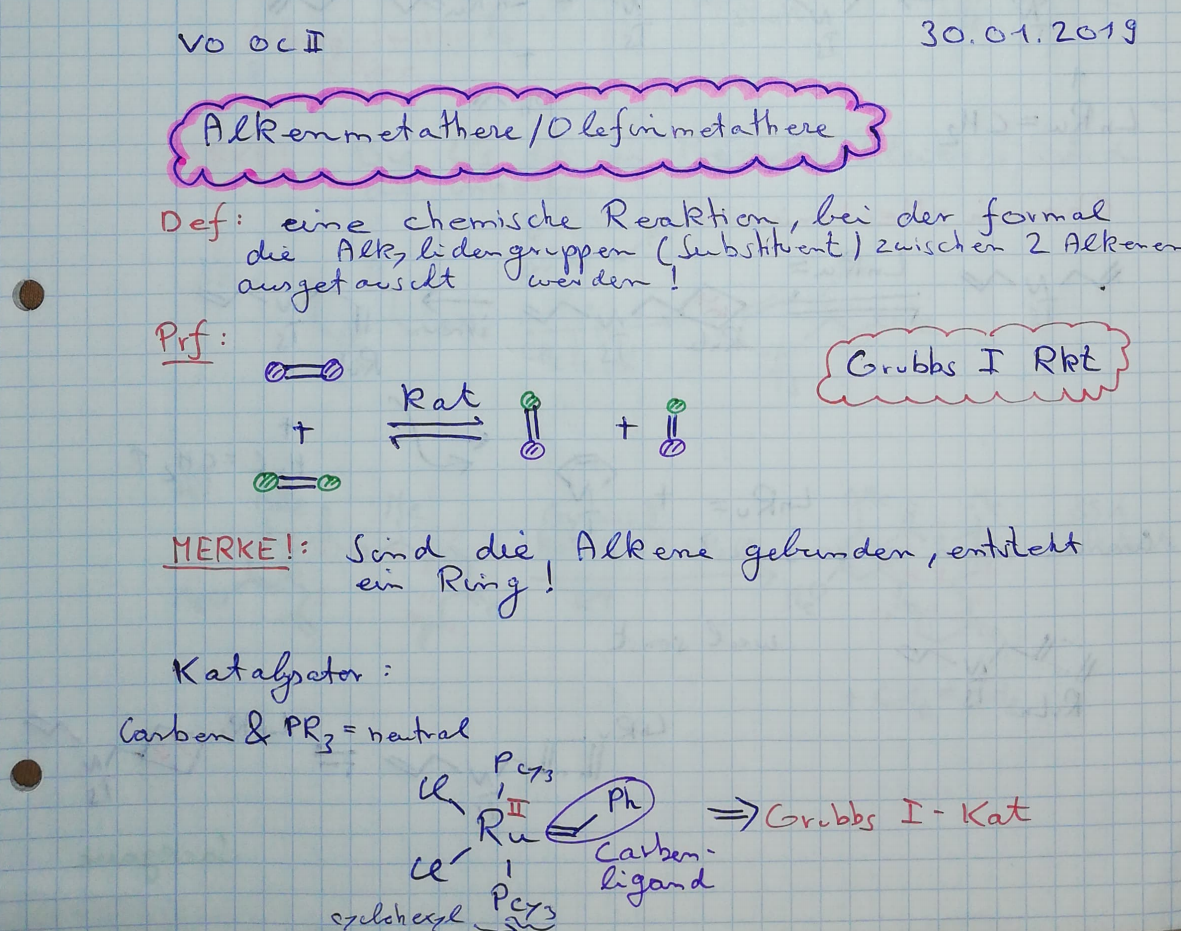 VO OC II
30.01.2019
Alkenmetathese/Olefinmetathese
Def: eine chemische Reaktion, bei der formal
die Alkylidengruppen (Substituent) zwischen 2 Alkenen
ausgetauscht werden!
Prf:
Grubbs I Rkt
kat
+
+
MERKE!: Sind die Alkene gebunden, entsteht
ein Ring!
Katalysator:
Carben & PR3 = neutral
PCy3
Cl
II
Ph
Ru
⇒ Grubbs I-Kat
Cl
Carben-
ligand
PCy3
cyclohexyl